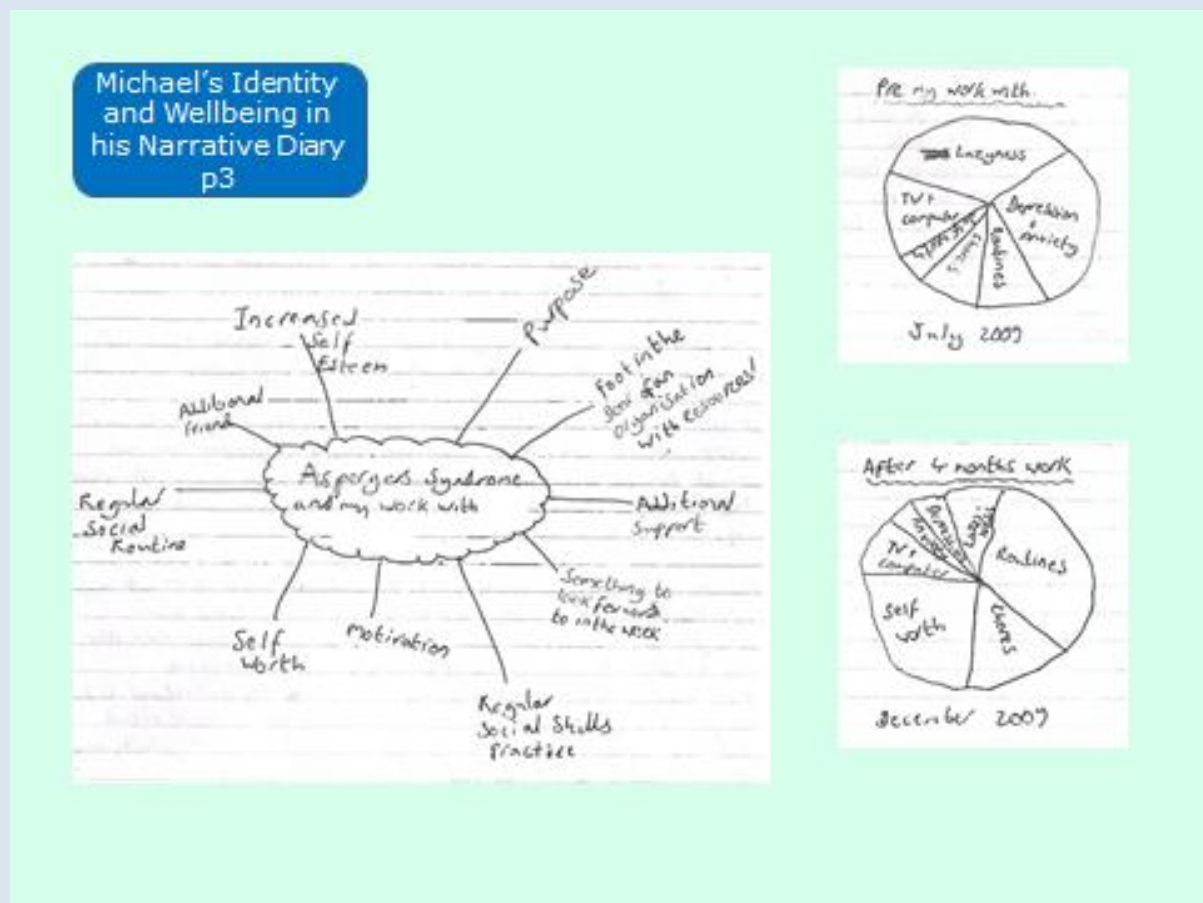 Michael's Identity
and Wellbeing in
his Narrative Diary
p3
Increased
Self
Esteem
Purpose
Foot in the
door of an
organisation
with resources!
Additional
friend
Aspergers Syndrome
and my work with
Regular
Social
Routine
Additional
Support
Something to
look forward
to in the week
Self
worth
Motivation
Regular
Social Skills
Practice
Pre my work with
Lazyness
TV +
computer
Depression
+
Anxiety
Chores
Routines
July 2009
After 4 months work
Depression
Anxiety
TV +
computer
Routines
Self
worth
Chores
December 2009